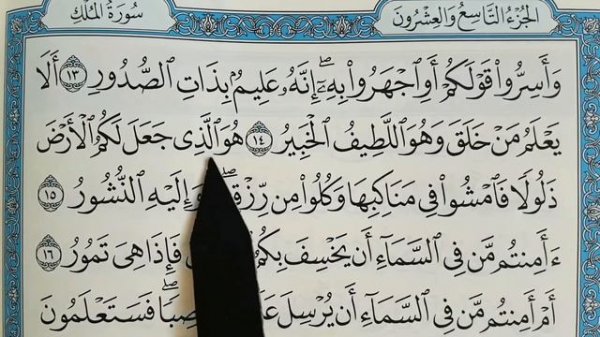 الجُزْءُ التَّاسِعُ وَالعِشْرُونَ
سُورَةُ المُلْكِ
وَأَسِرُّوا۟ قَوْلَكُمْ أَوِ ٱجْهَرُوا۟ بِهِۦٓ ۖ إِنَّهُۥ عَلِيمٌۢ بِذَاتِ ٱلصُّدُورِ ١٣ أَلَا
يَعْلَمُ مَنْ خَلَقَ وَهُوَ ٱللَّطِيفُ ٱلْخَبِيرُ ١٤ هُوَ ٱلَّذِى جَعَلَ لَكُمُ ٱلْأَرْضَ
ذَلُولًا فَٱمْشُوا۟ فِى مَنَاكِبِهَا وَكُلُوا۟ مِن رِّزْقِهِۦ ۖ وَإِلَيْهِ ٱلنُّشُورُ ١٥
ءَأَمِنتُم مَّن فِى ٱلسَّمَآءِ أَن يَخْسِفَ بِكُمُ فَإِذَا هِىَ تَمُورُ ١٦
أَمْ أَمِنتُم مَّن فِى ٱلسَّمَآءِ أَن يُرْسِلَ فَسَتَعْلَمُونَ